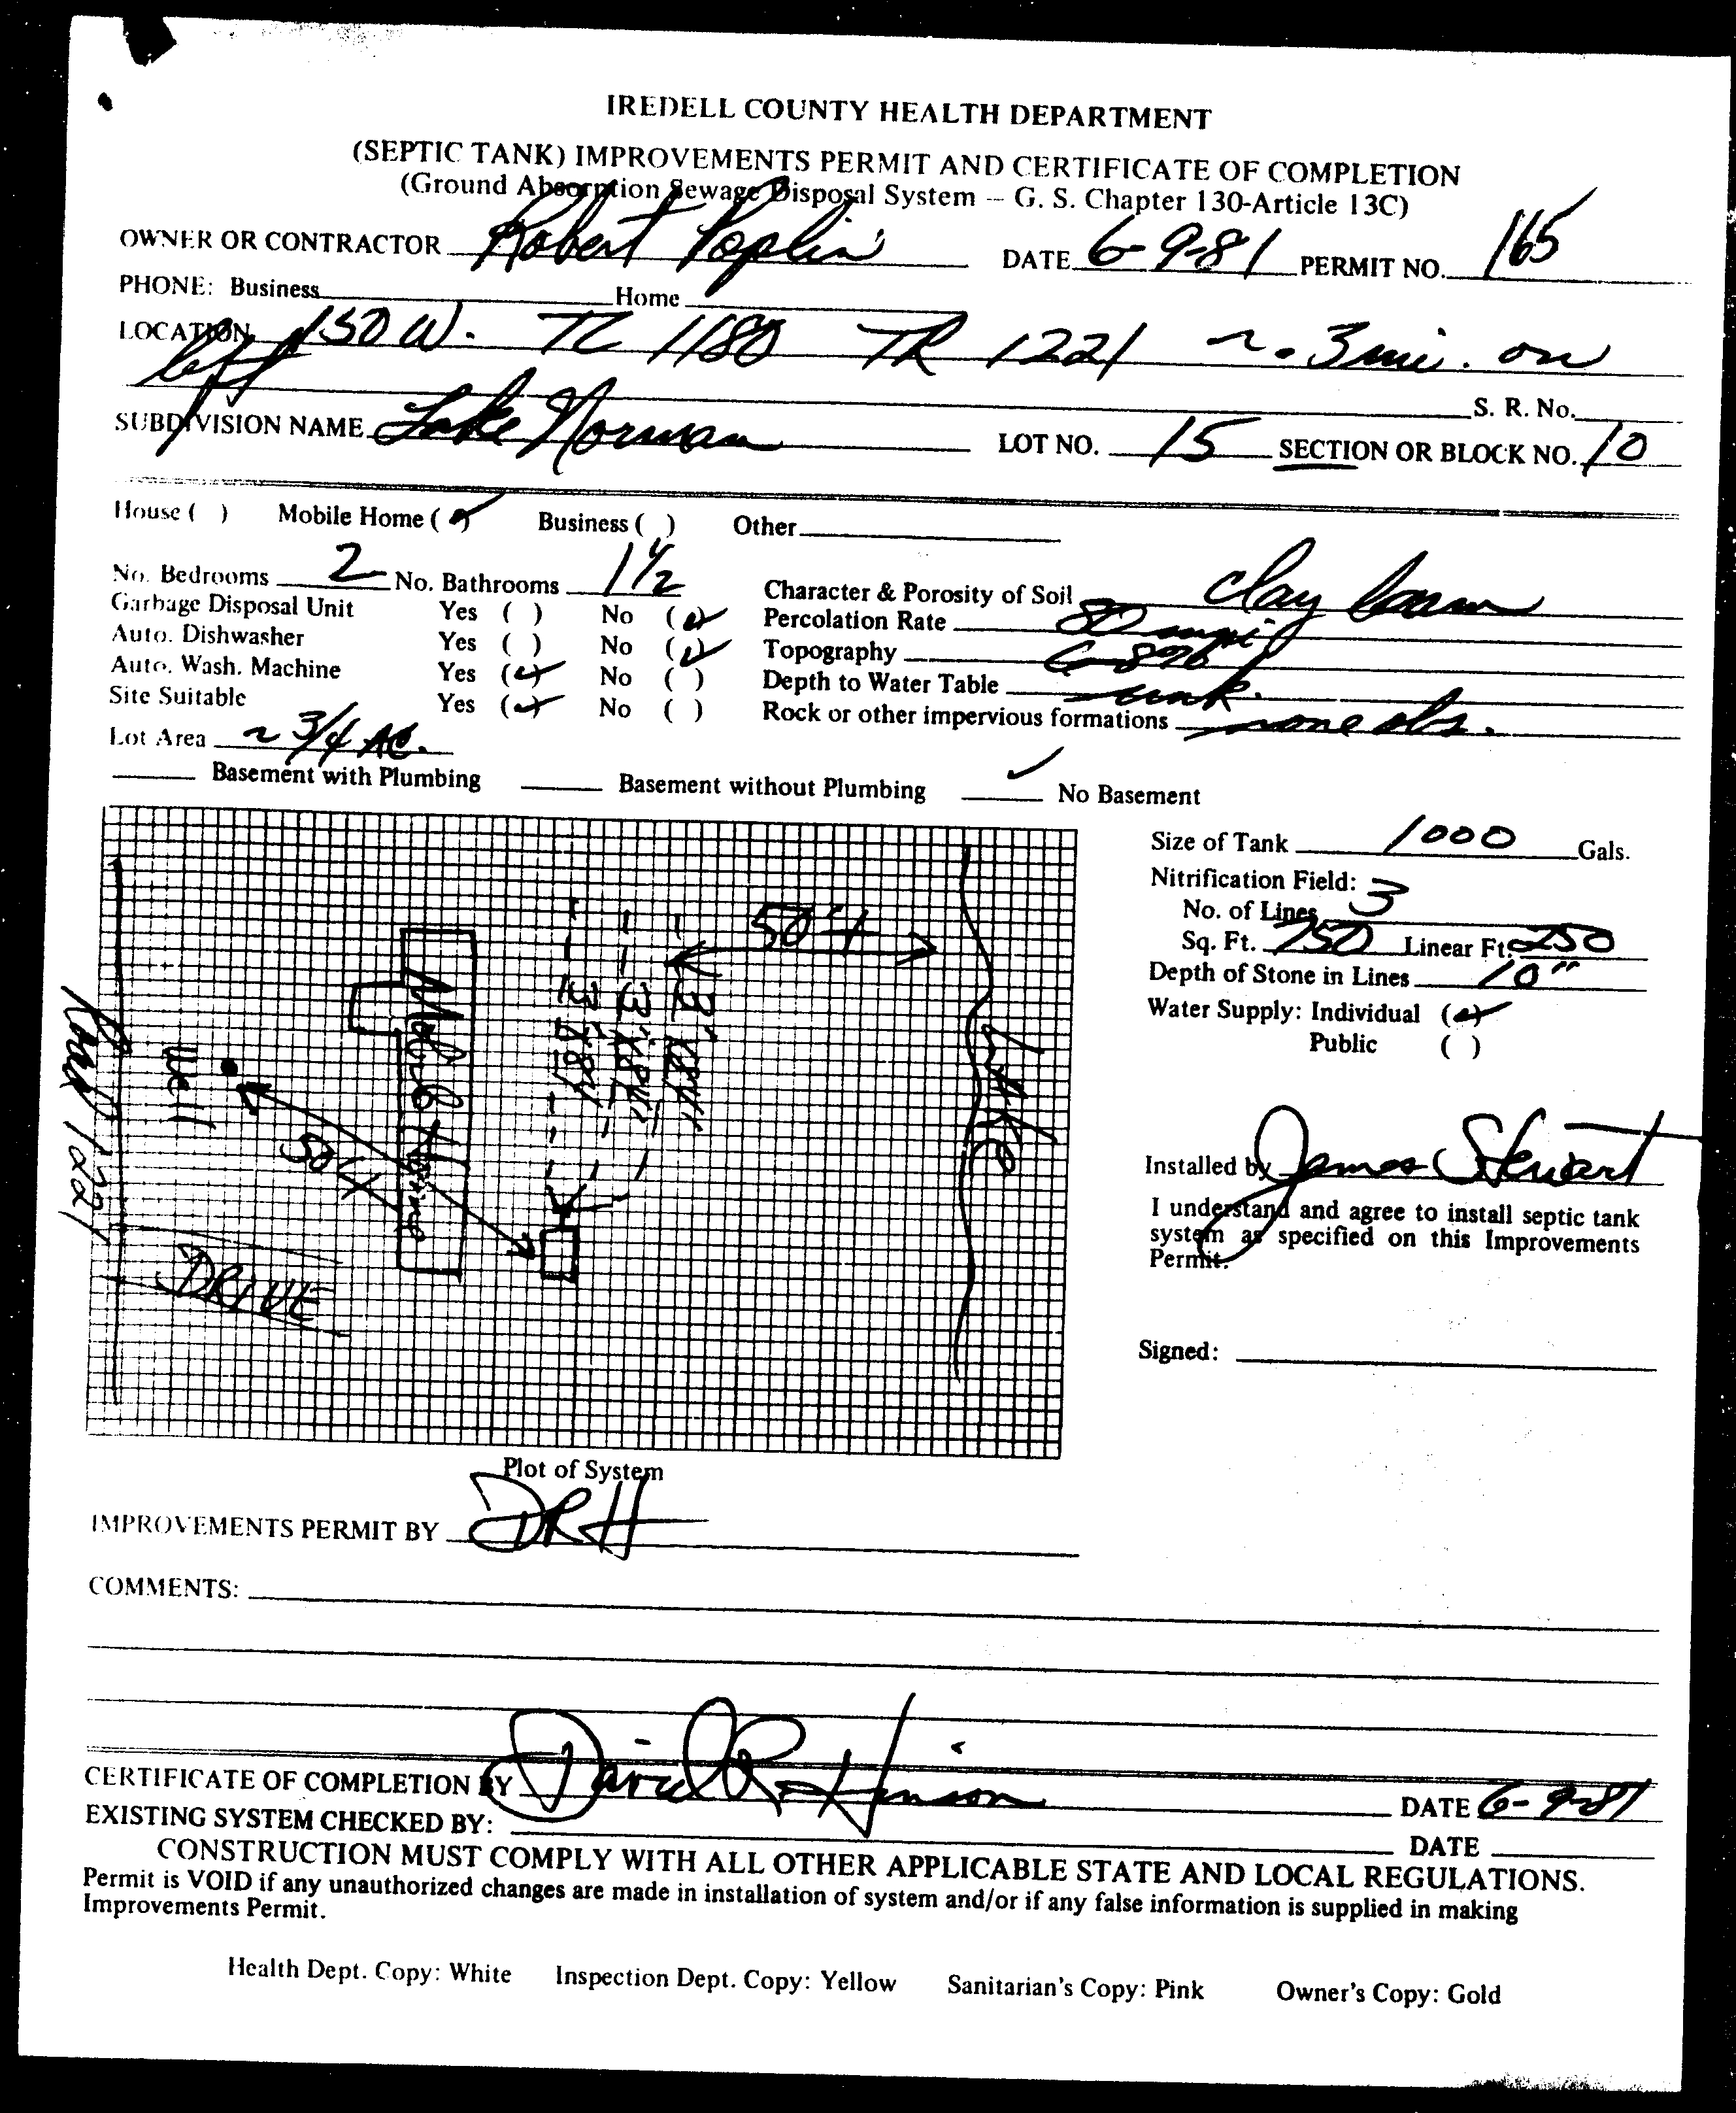 IREDELL COUNTY HEALTH DEPARTMENT
(SEPTIC TANK) IMPROVEMENTS PERMIT AND CERTIFICATE OF COMPLETION
(Ground Absorption Sewage Disposal System – G. S. Chapter 130-Article 13C)
OWNER OR CONTRACTOR Robert Poplin DATE 6-9-81 PERMIT NO. 165
PHONE: Business Home
LOCATION 150 W. TL 1180 TR 1221 ~ .3 mi. on
left
S. R. No.
SUBDIVISION NAME Lake Norman LOT NO. 15 SECTION OR BLOCK NO. 10
House ( ) Mobile Home (✓) Business ( ) Other
No. Bedrooms 2 No. Bathrooms 1 1/2 Character & Porosity of Soil clay loam
Garbage Disposal Unit Yes ( ) No (✓) Percolation Rate 80 mpi
Auto. Dishwasher Yes ( ) No (✓) Topography 6-8%
Auto. Wash. Machine Yes (✓) No ( ) Depth to Water Table unk.
Site Suitable Yes (✓) No ( ) Rock or other impervious formations none obs.
Lot Area ~ 3/4 AC.
Basement with Plumbing Basement without Plumbing ✓ No Basement
Size of Tank 1000 Gals.
Nitrification Field:
No. of Lines 3
Sq. Ft. 750 Linear Ft. 250
Depth of Stone in Lines 10"
Water Supply: Individual (✓)
Public ( )
Installed by James Stewart
I understand and agree to install septic tank
system as specified on this Improvements
Permit.
Signed:
Road 1221
Well
50'+
DRIVE
Mobile Home
3'x84'
3'x84'
3'x84'
50'+
Lake
Plot of System
IMPROVEMENTS PERMIT BY DRH
COMMENTS:
CERTIFICATE OF COMPLETION BY David R. Hinson DATE 6-9-81
EXISTING SYSTEM CHECKED BY: DATE
CONSTRUCTION MUST COMPLY WITH ALL OTHER APPLICABLE STATE AND LOCAL REGULATIONS.
Permit is VOID if any unauthorized changes are made in installation of system and/or if any false information is supplied in making
Improvements Permit.
Health Dept. Copy: White Inspection Dept. Copy: Yellow Sanitarian's Copy: Pink Owner's Copy: Gold